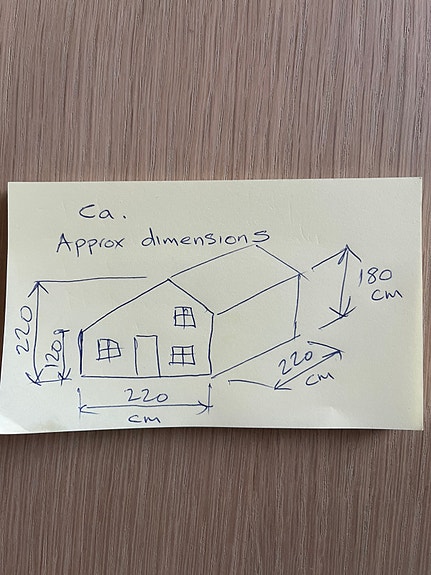 Ca.
Approx dimensions
180
cm
220
120
220
cm
220
cm